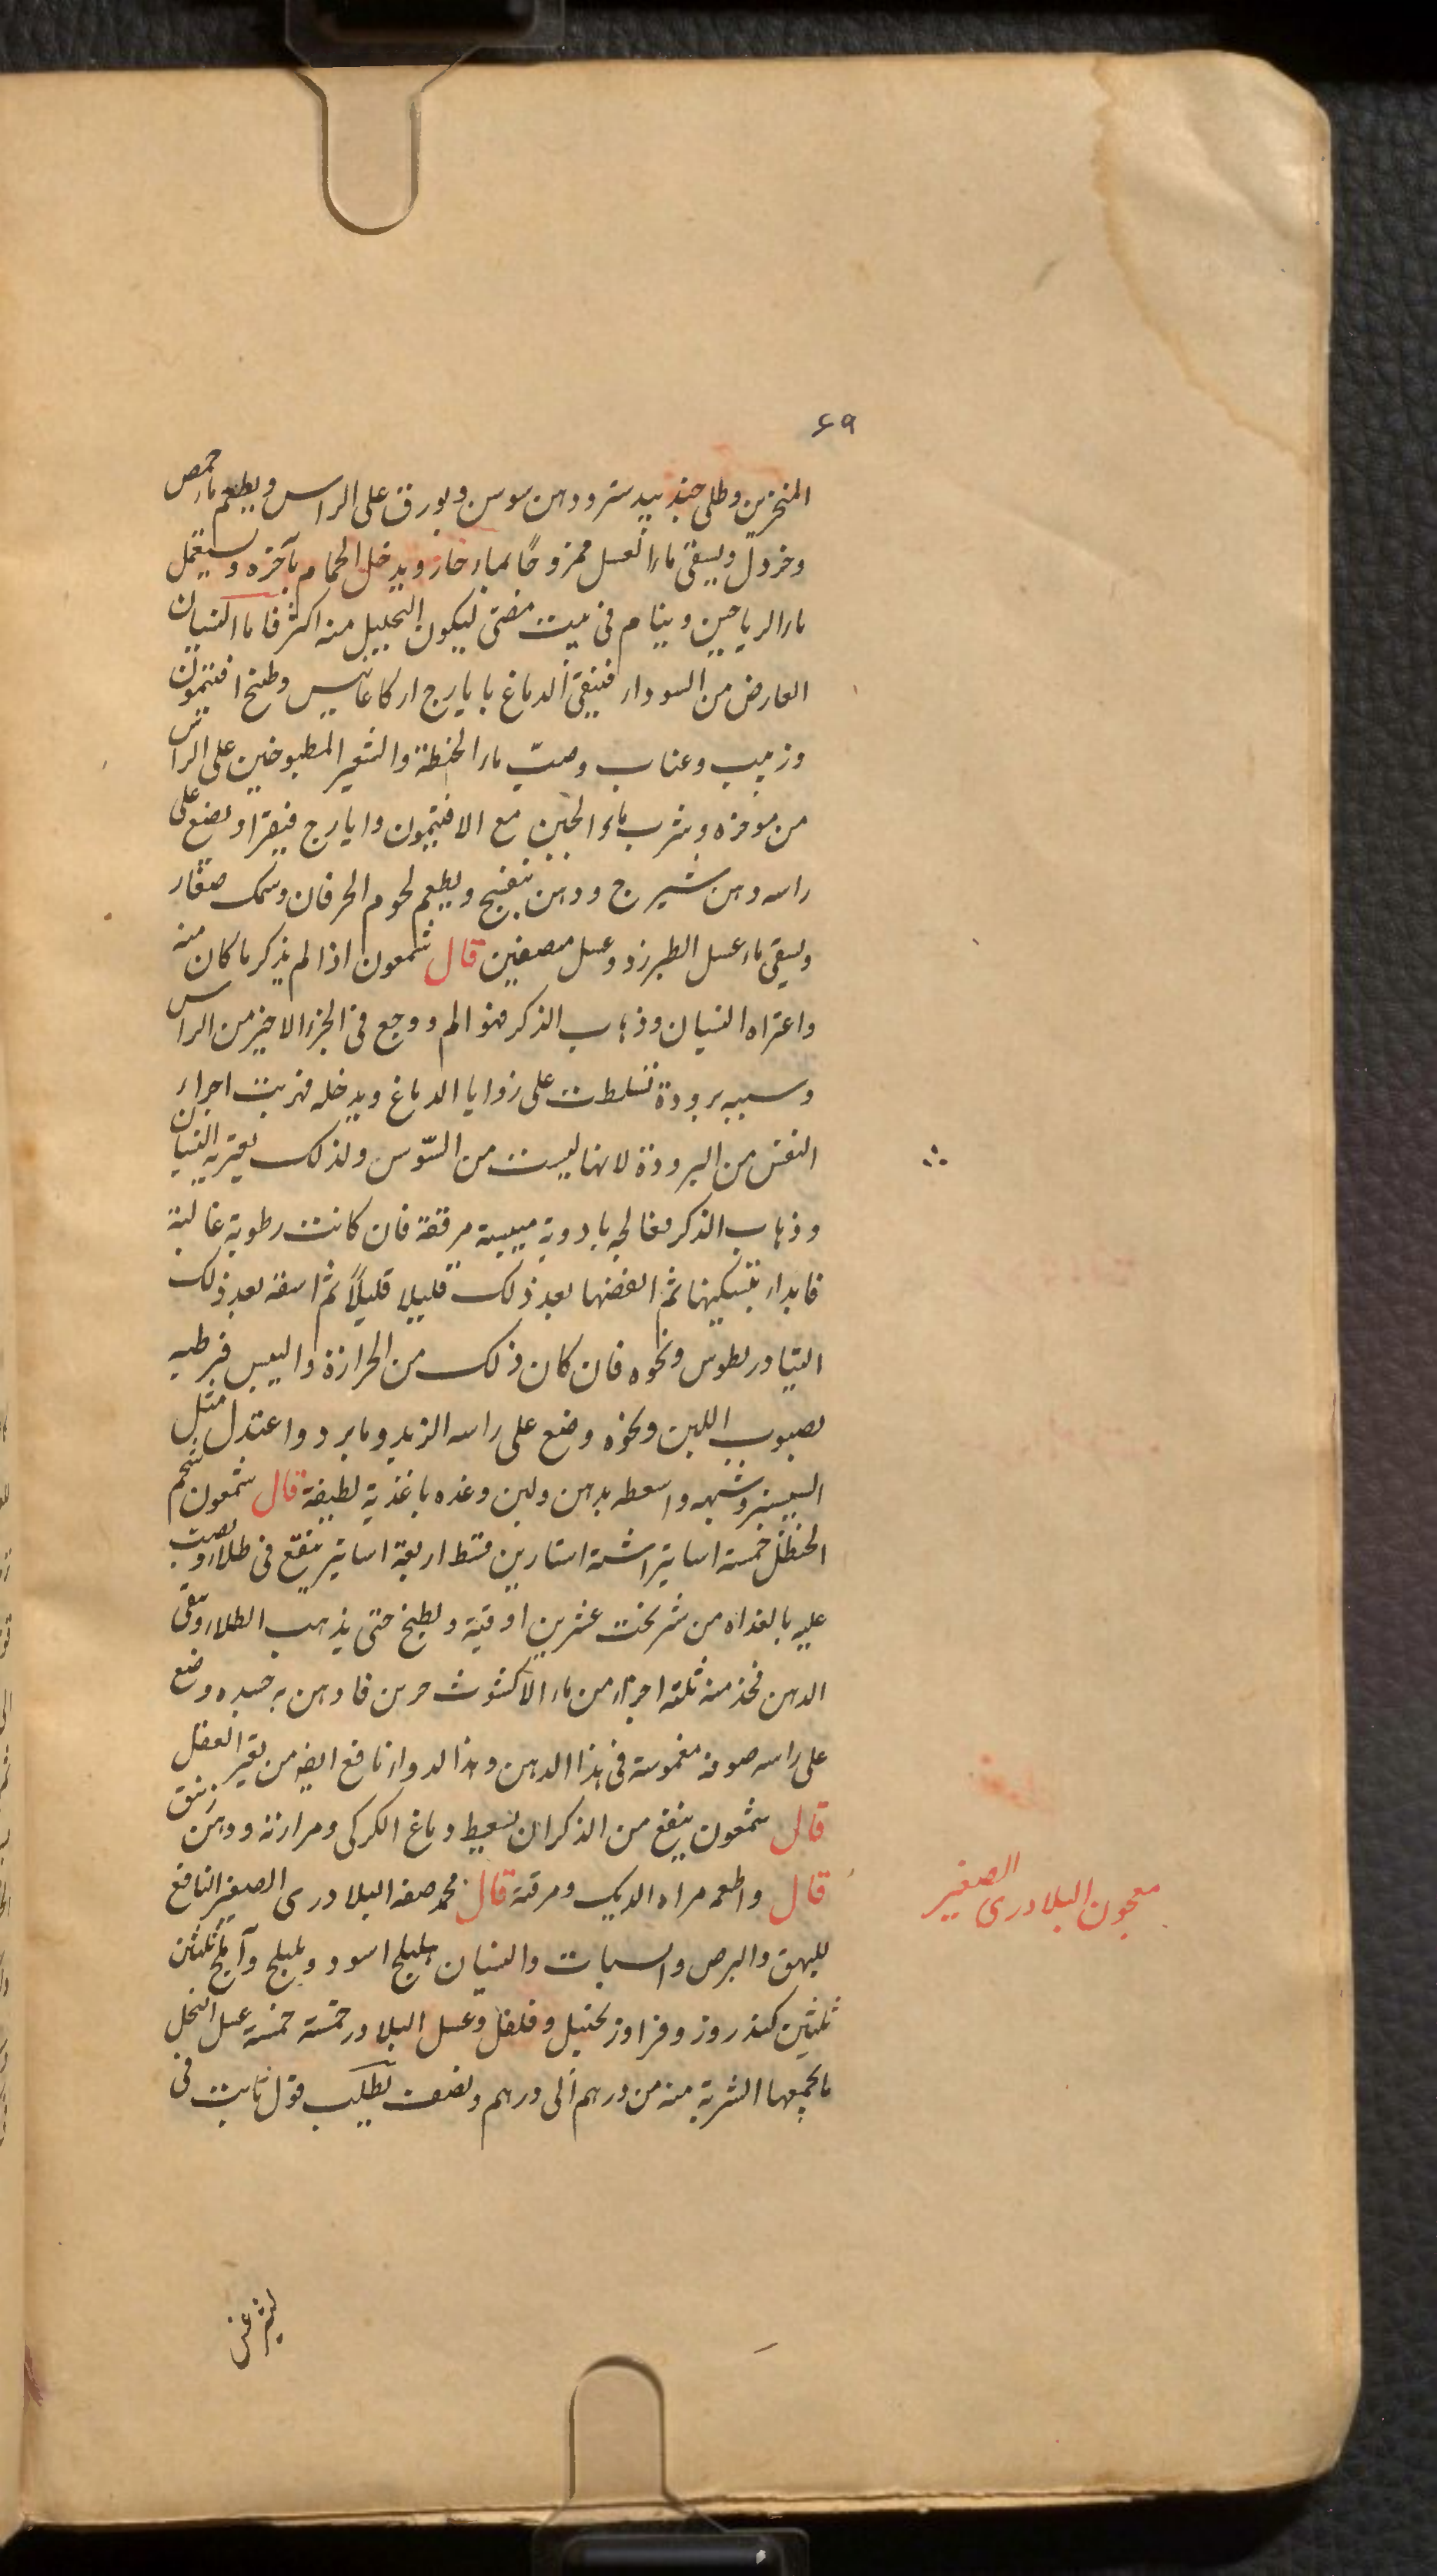 ٤٩
المنخرين وطلى جندبيدستر ودهن سوسن وبورق على الراس ويطعم ماء حمص
وخردل ويسقى ماء العسل ممزوجًا بماء حار ويدخل الحمام بآخره ويستعمل
ماء الرياحين وينام فى بيت مضئ ليكون التحليل منه اكثر فاما النسيان
العارض من السوداء فينقى الدماغ بايارج اركاغانيس وطبخ افتيمون
وزبيب وعناب وصبّ ماء الحنطة والشعير المطبوخين على الراس
من موخره وشرب ماء الجبن مع الافتيمون وايارج فيقرا ويضع على
راسه دهن شيرج ودهن بنفسج ويطعم لحوم الخرفان وسمك صغار
ويسقى ماء عسل الطبرزد وعسل مصفين قال شمعون اذا لم يذكر ما كان منه
واعتراه النسيان وذهاب الذكر فهو الم ووجع فى الجزء الاخير من الراس
وسببه برودة تسلطت على زوايا الدماغ ويدخله فهربت اجزاء
النفس من البرودة لانها ليست من السّوس ولذلك يعتريه النسيان
وذهاب الذكر فعالجه بادوية ميبسة مرققة فان كانت رطوبة غالبة
فابداء بتسكينها ثم انفضها بعد ذلك قليلا قليلاً ثم اسقه بعد ذلك
التيادريطوس ونحوه فان كان ذلك من الحرارة واليبس فرطبه
بصبوب اللبن ونحوه وضع على راسه الزبد وما برد واعتدل مثل
البنفسج وشبهه واسعطه بدهن ولبن وغذه باغذية لطيفة قال شمعون شحم
الحنظل خمسة اساتير اشنة استارين قسط اربعة اساتير ينقع فى طلاء ويصب
عليه بالغداه من شريخت عشرين اوقية ويطبخ حتى يذهب الطلاء ويبقى
الدهن فخذ منه ثلثة اجزاء من ماء الاكشوث جزين فادهن به جسده وضع
على راسه صوفة مغموسة فى هذا الدهن وهذا لدواء نافع ايضا من تغير العقل
قال شمعون ينفع من الذكر ان يسعط دماغ الكركى ومرارته ودهن زنبق
قال واطعمه مراه الديك ومرقة قال محمد صفه البلادرى الصغير النافع
للبهق والبرص والسبات والنسيان هليلج اسود وبليلج وآملج ثلثين
ثلثين كندر وزوفرا وزنجبيل وفلفل وعسل البلادر خمسة خمسة عسل النحل
ما يجمعها الشربة منه من درهم الى درهم ونصف تطلب قول ثابت فى
معجون البلادرى الصغير